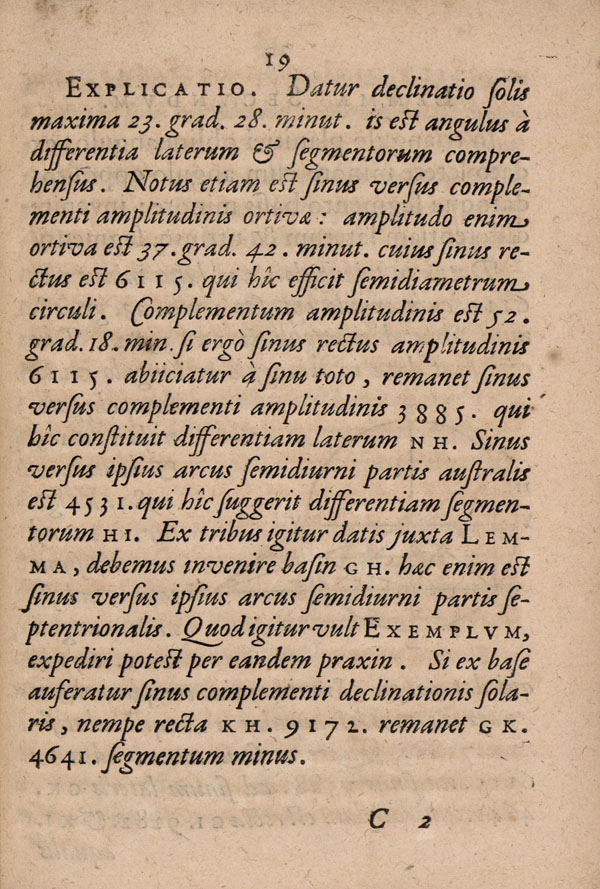 19
EXPLICATIO. Datur declinatio solis
maxima 23. grad. 28. minut. is est angulus à
differentia laterum & segmentorum compre-
hensus. Notus etiam est sinus versus comple-
menti amplitudinis ortivæ: amplitudo enim
ortiva est 37. grad. 42. minut. cuius sinus re-
ctus est 6115. qui hîc efficit semidiametrum
circuli. Complementum amplitudinis est 52.
grad. 18. min. si ergò sinus rectus amplitudinis
6115. abiiciatur à sinu toto, remanet sinus
versus complementi amplitudinis 3885. qui
hîc constituit differentiam laterum NH. Sinus
versus ipsius arcus semidiurni partis australis
est 4531. qui hîc suggerit differentiam segmen-
torum HI. Ex tribus igitur datis juxta LEM-
MA, debemus invenire basin GH. hæc enim est
sinus versus ipsius arcus semidiurni partis se-
ptentrionalis. Quod igitur vult EXEMPLVM,
expediri potest per eandem praxin. Si ex base
auferatur sinus complementi declinationis sola-
ris, nempe recta KH. 9172. remanet GK.
4641. segmentum minus.
C 2